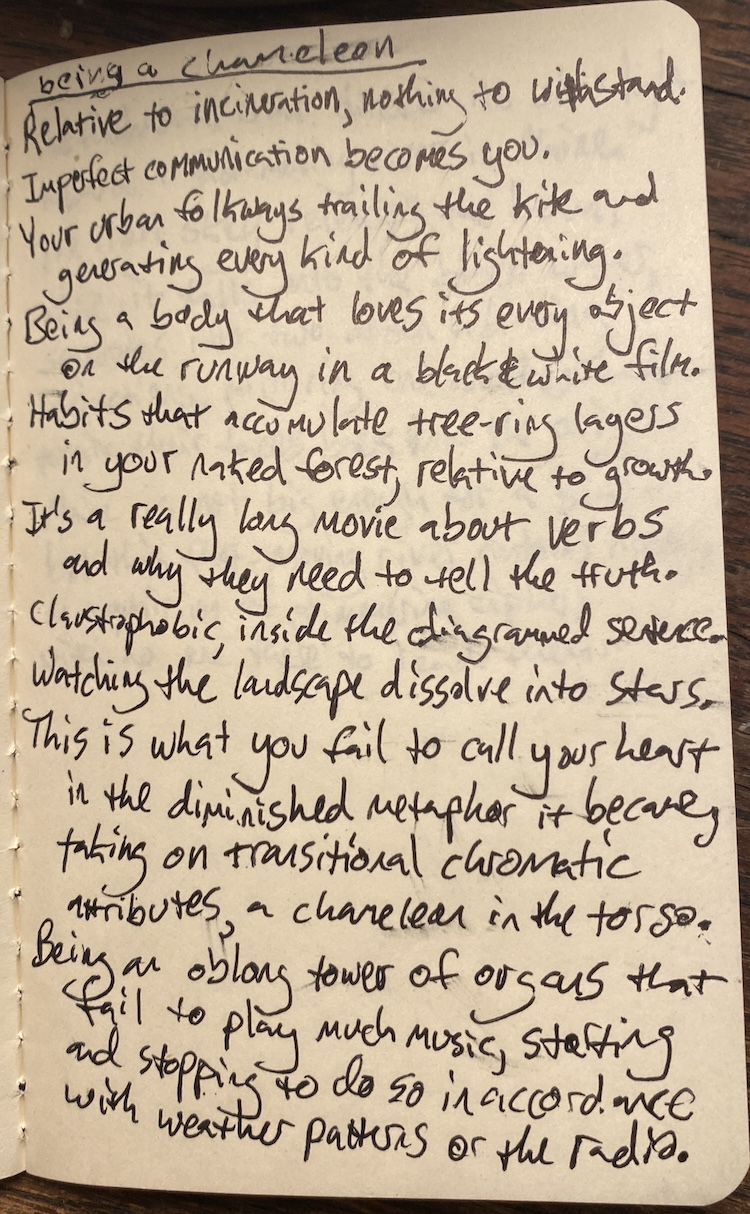 being a chameleon
Relative to incineration, nothing to withstand.
Imperfect communication becomes you.
Your urban folkways trailing the kite and
generating every kind of lightening.
Being a body that loves its every object
on the runway in a black & white film.
Habits that accumulate tree-ring layers
in your naked forest, relative to growth.
It's a really long movie about verbs
and why they need to tell the truth.
Claustrophobic, inside the diagrammed sentence.
Watching the landscape dissolve into stars.
This is what you fail to call your heart
in the diminished metaphor it became,
taking on transitional chromatic
attributes, a chameleon in the torso.
Being an oblong tower of organs that
fail to play much music, starting
and stopping to do so in accordance
with weather patterns or the radio.